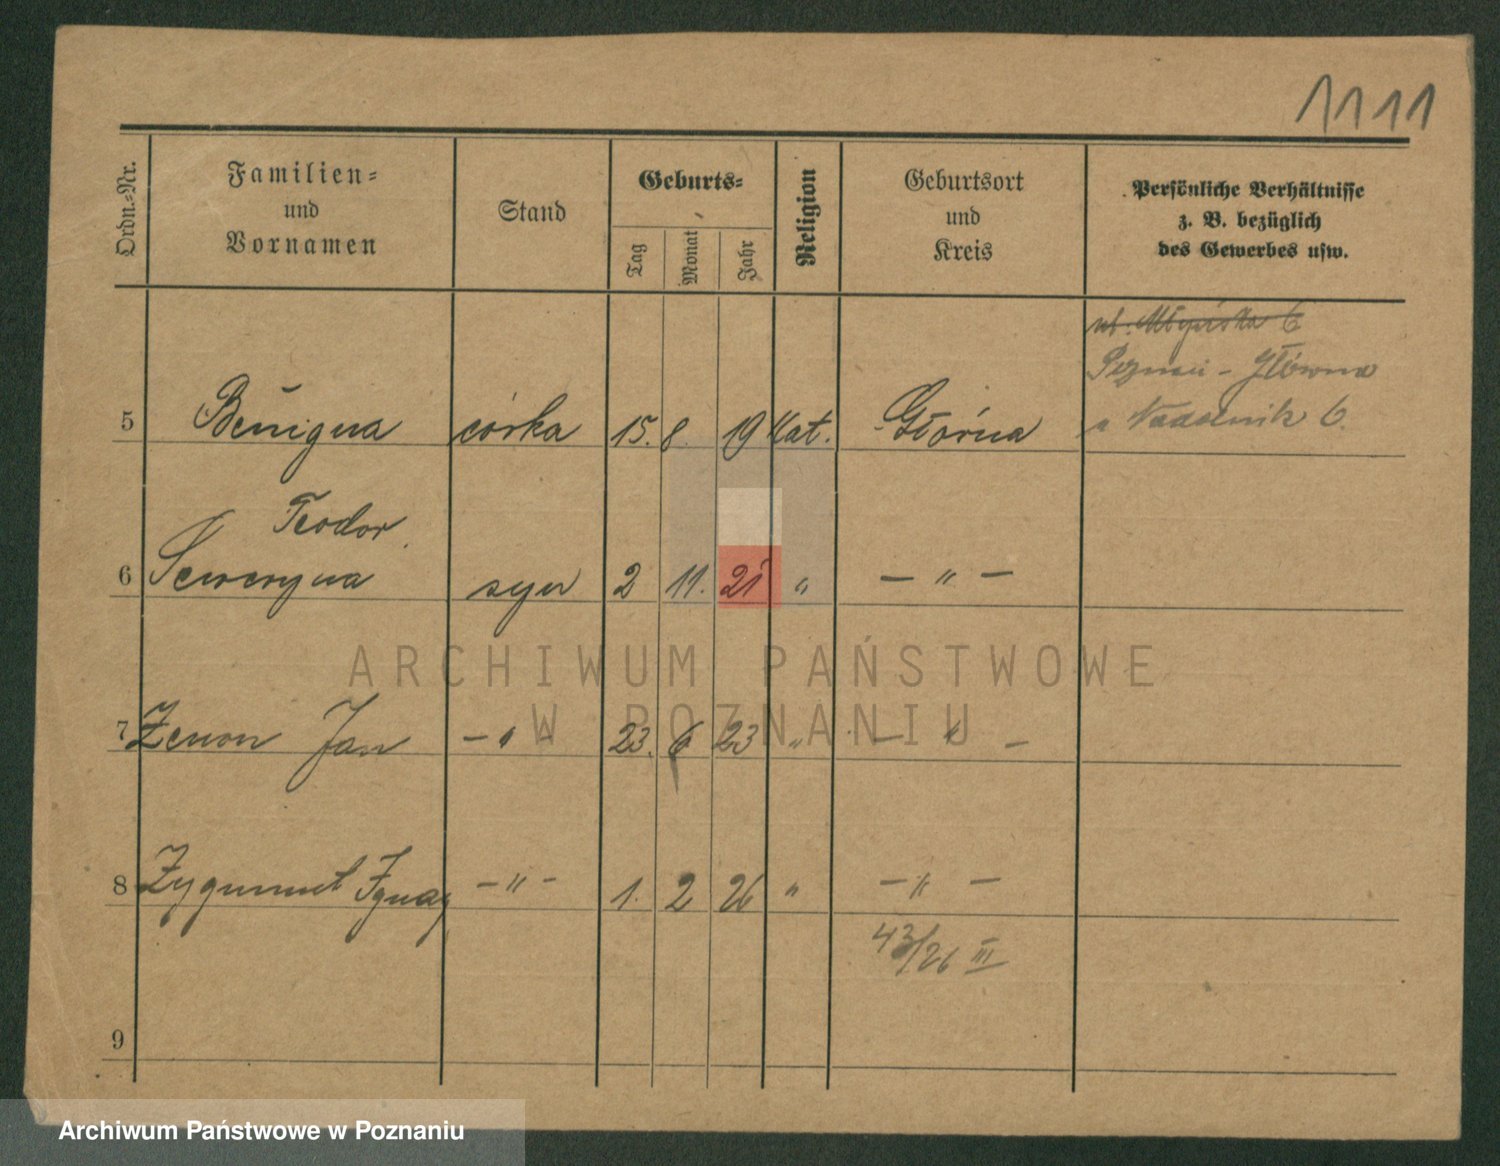 1111
Ordn.-Nr.
Familien-
und
Vornamen
Stand
Geburts-
Tag
Monat
Jahr
Religion
Geburtsort
und
Kreis
Persönliche Verhältnisse
z. B. bezüglich
des Gewerbes usw.
ul. Młyńska 6
Poznań - Główna
Nadolnik 6.
5 Benigna córka 15. 8. 19 kat. Główna
Teodor
6 Seweryna syn 2 11. 21 " — " —
ARCHIWUM PAŃSTWOWE
W POZNANIU
7 Zenon Jan — " — 23. 6 23 " — " —
8 Zygmunt Ignacy — " — 1. 2 26 " — " —
43/26 III
9
Archiwum Państwowe w Poznaniu